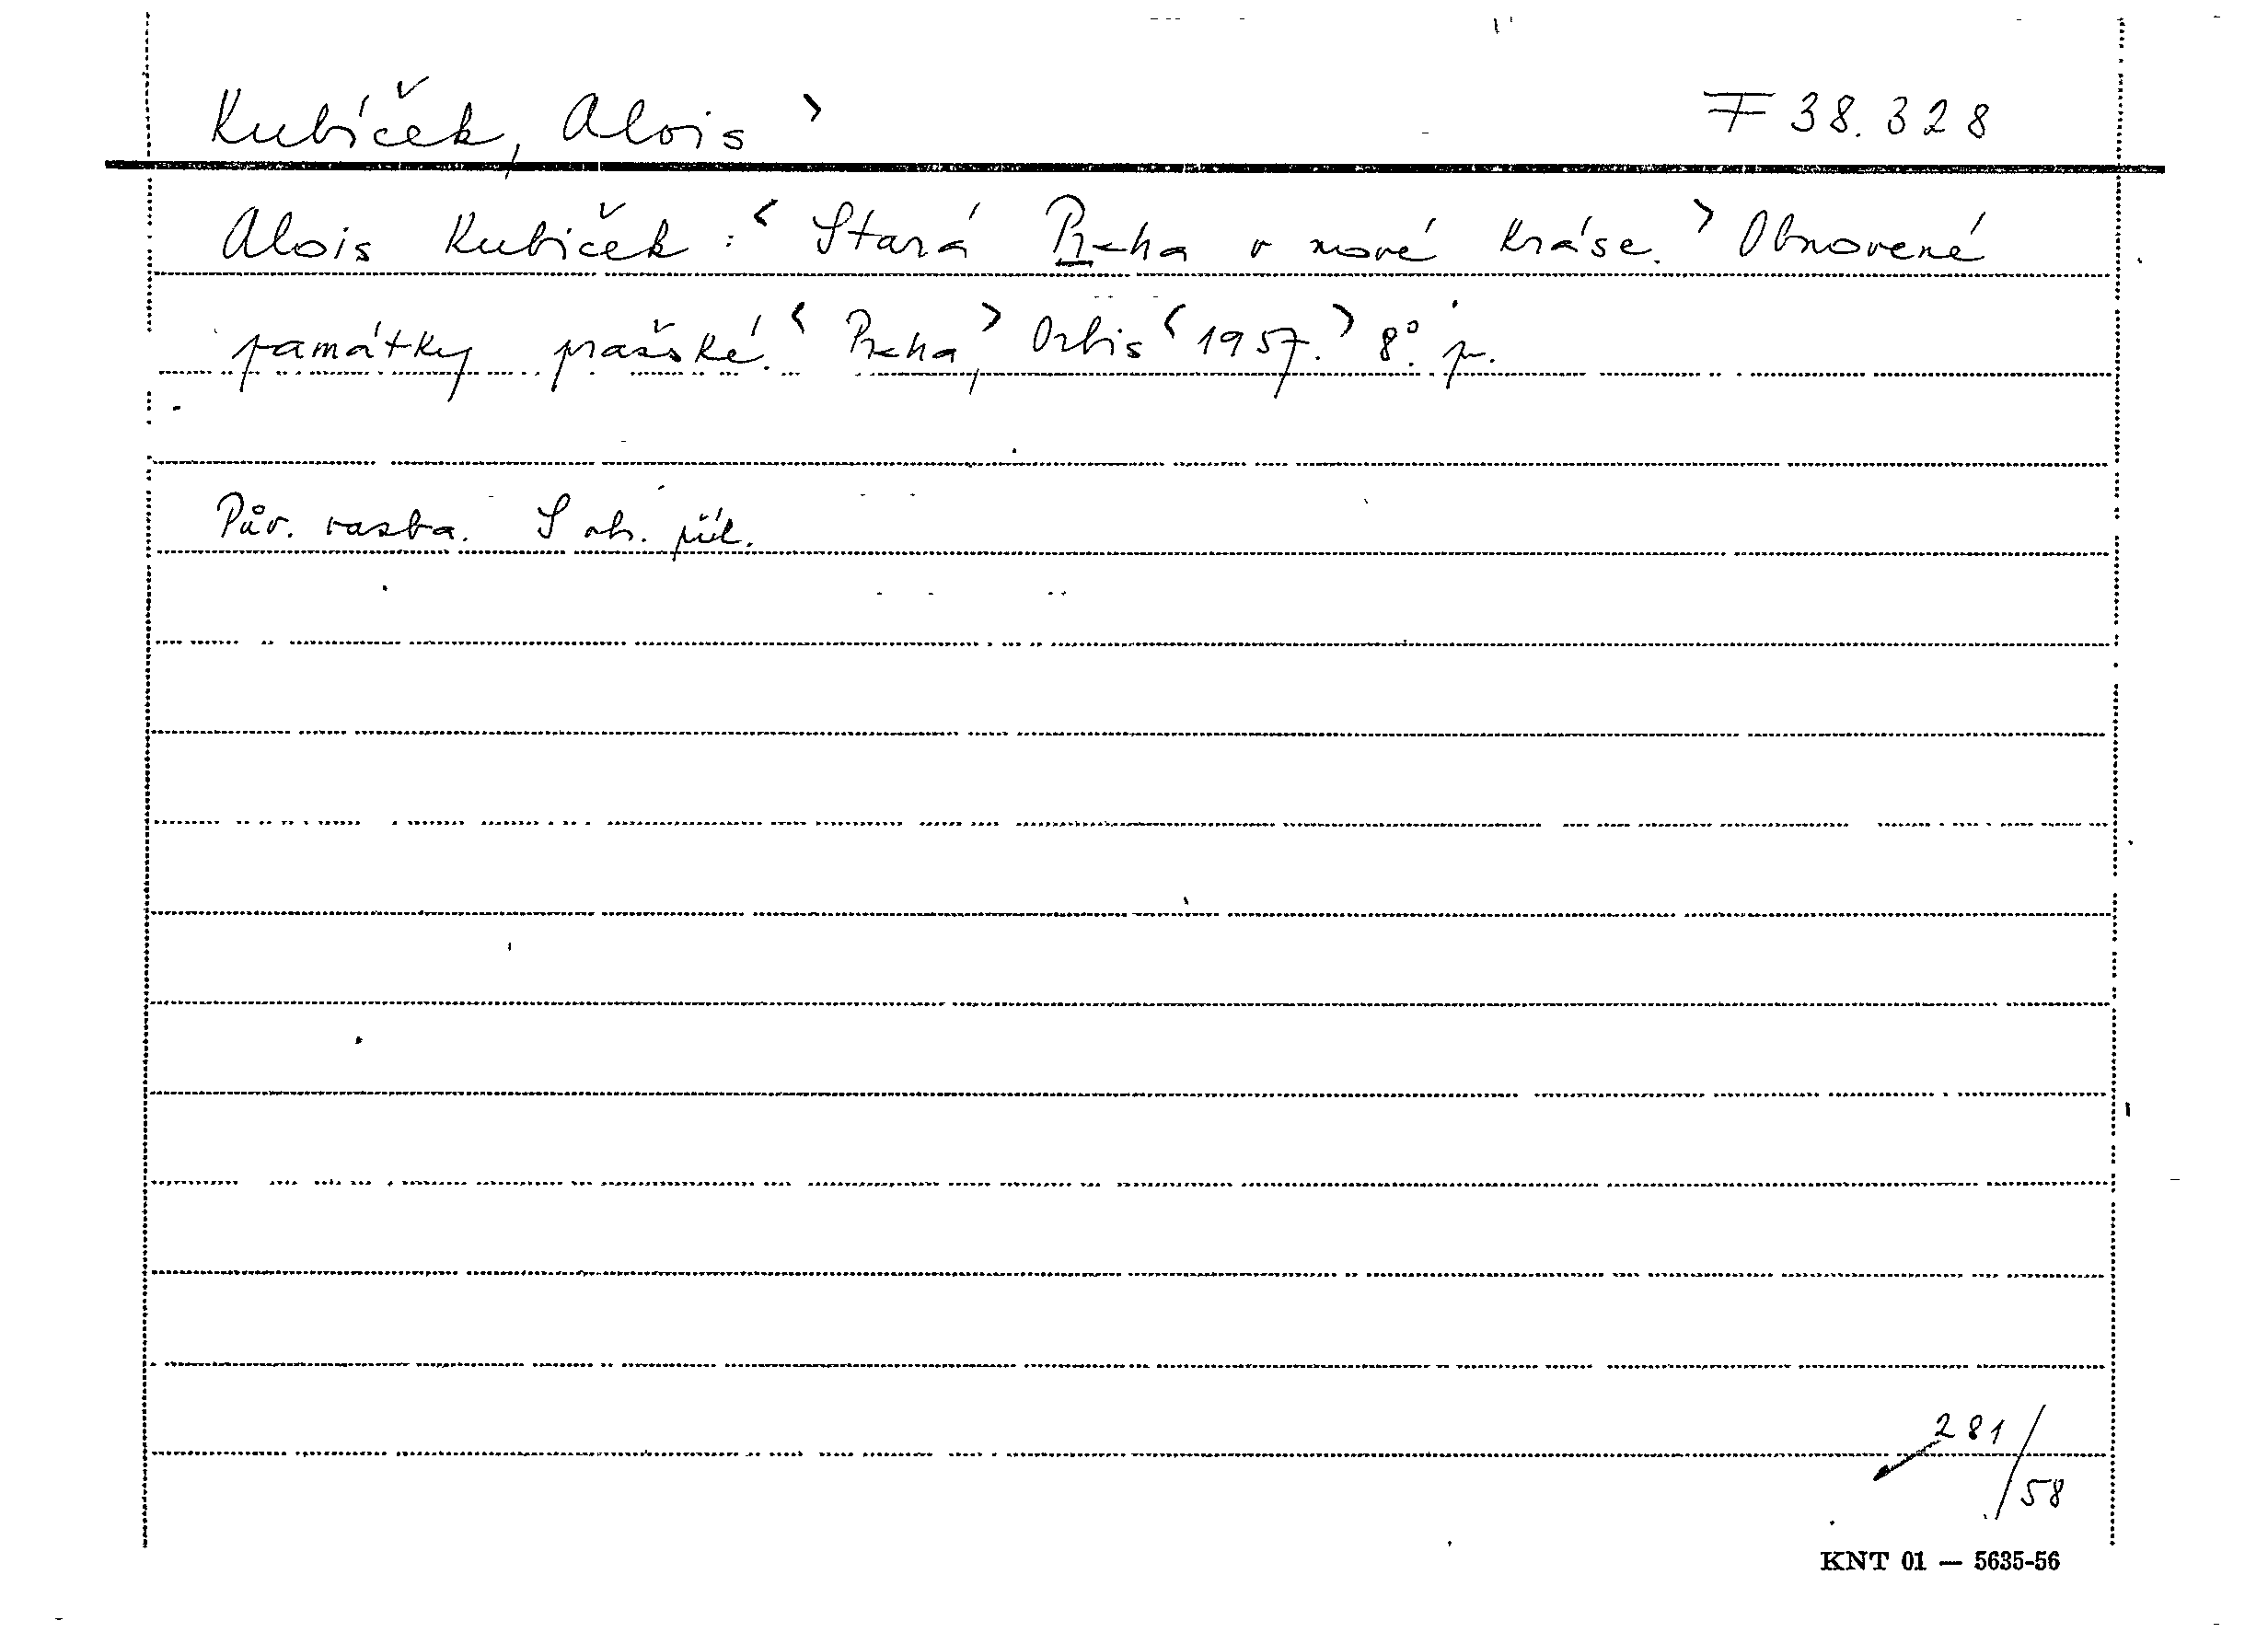 Kubíček, Alois > F 38.328
Alois Kubíček : < Stará Praha v nové kráse. > Obnovené
památky pražské. < Praha, > Orbis < 1957. > 8°. p.
Pův. vazba. S ob. příl.
281/58
KNT 01 — 5635-56